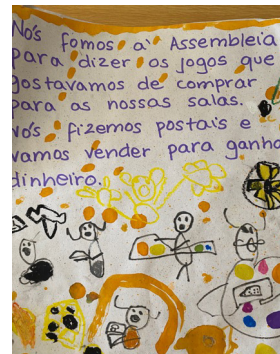 Nós fomos a' Assembleia
para dizer os jogos que
gostavamos de comprar
para as nossas salas.
Nós fizemos postais e
vamos vender para ganha
dinheiro.